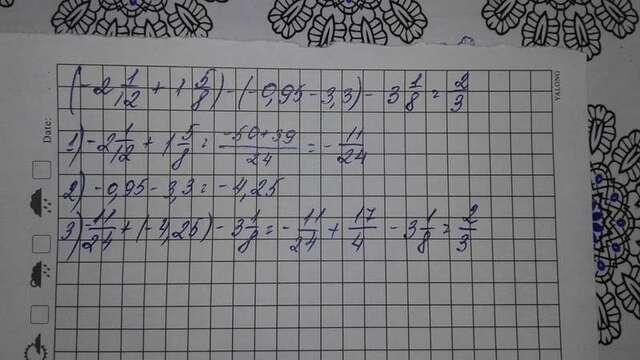 Date:
(-2 1/12 + 1 5/8) - (-0,95 - 3,3) - 3 1/8 = 2/3
1) -2 1/12 + 1 5/8 = -50+39/24 = -11/24
2) -0,95 - 3,3 = -4,25
3) -11/24 + (-4,25) - 3 1/8 = -11/24 + 17/4 - 3 1/8 = 2/3
YALONG